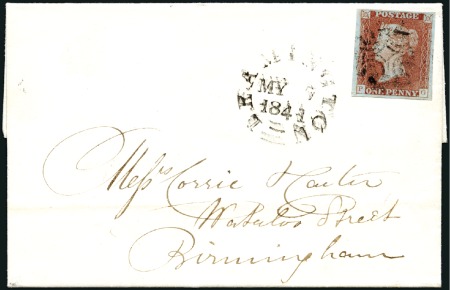 POSTAGE
ONE PENNY
MY
1841
Messrs Corrie &
Waterloo Street
Birmingham